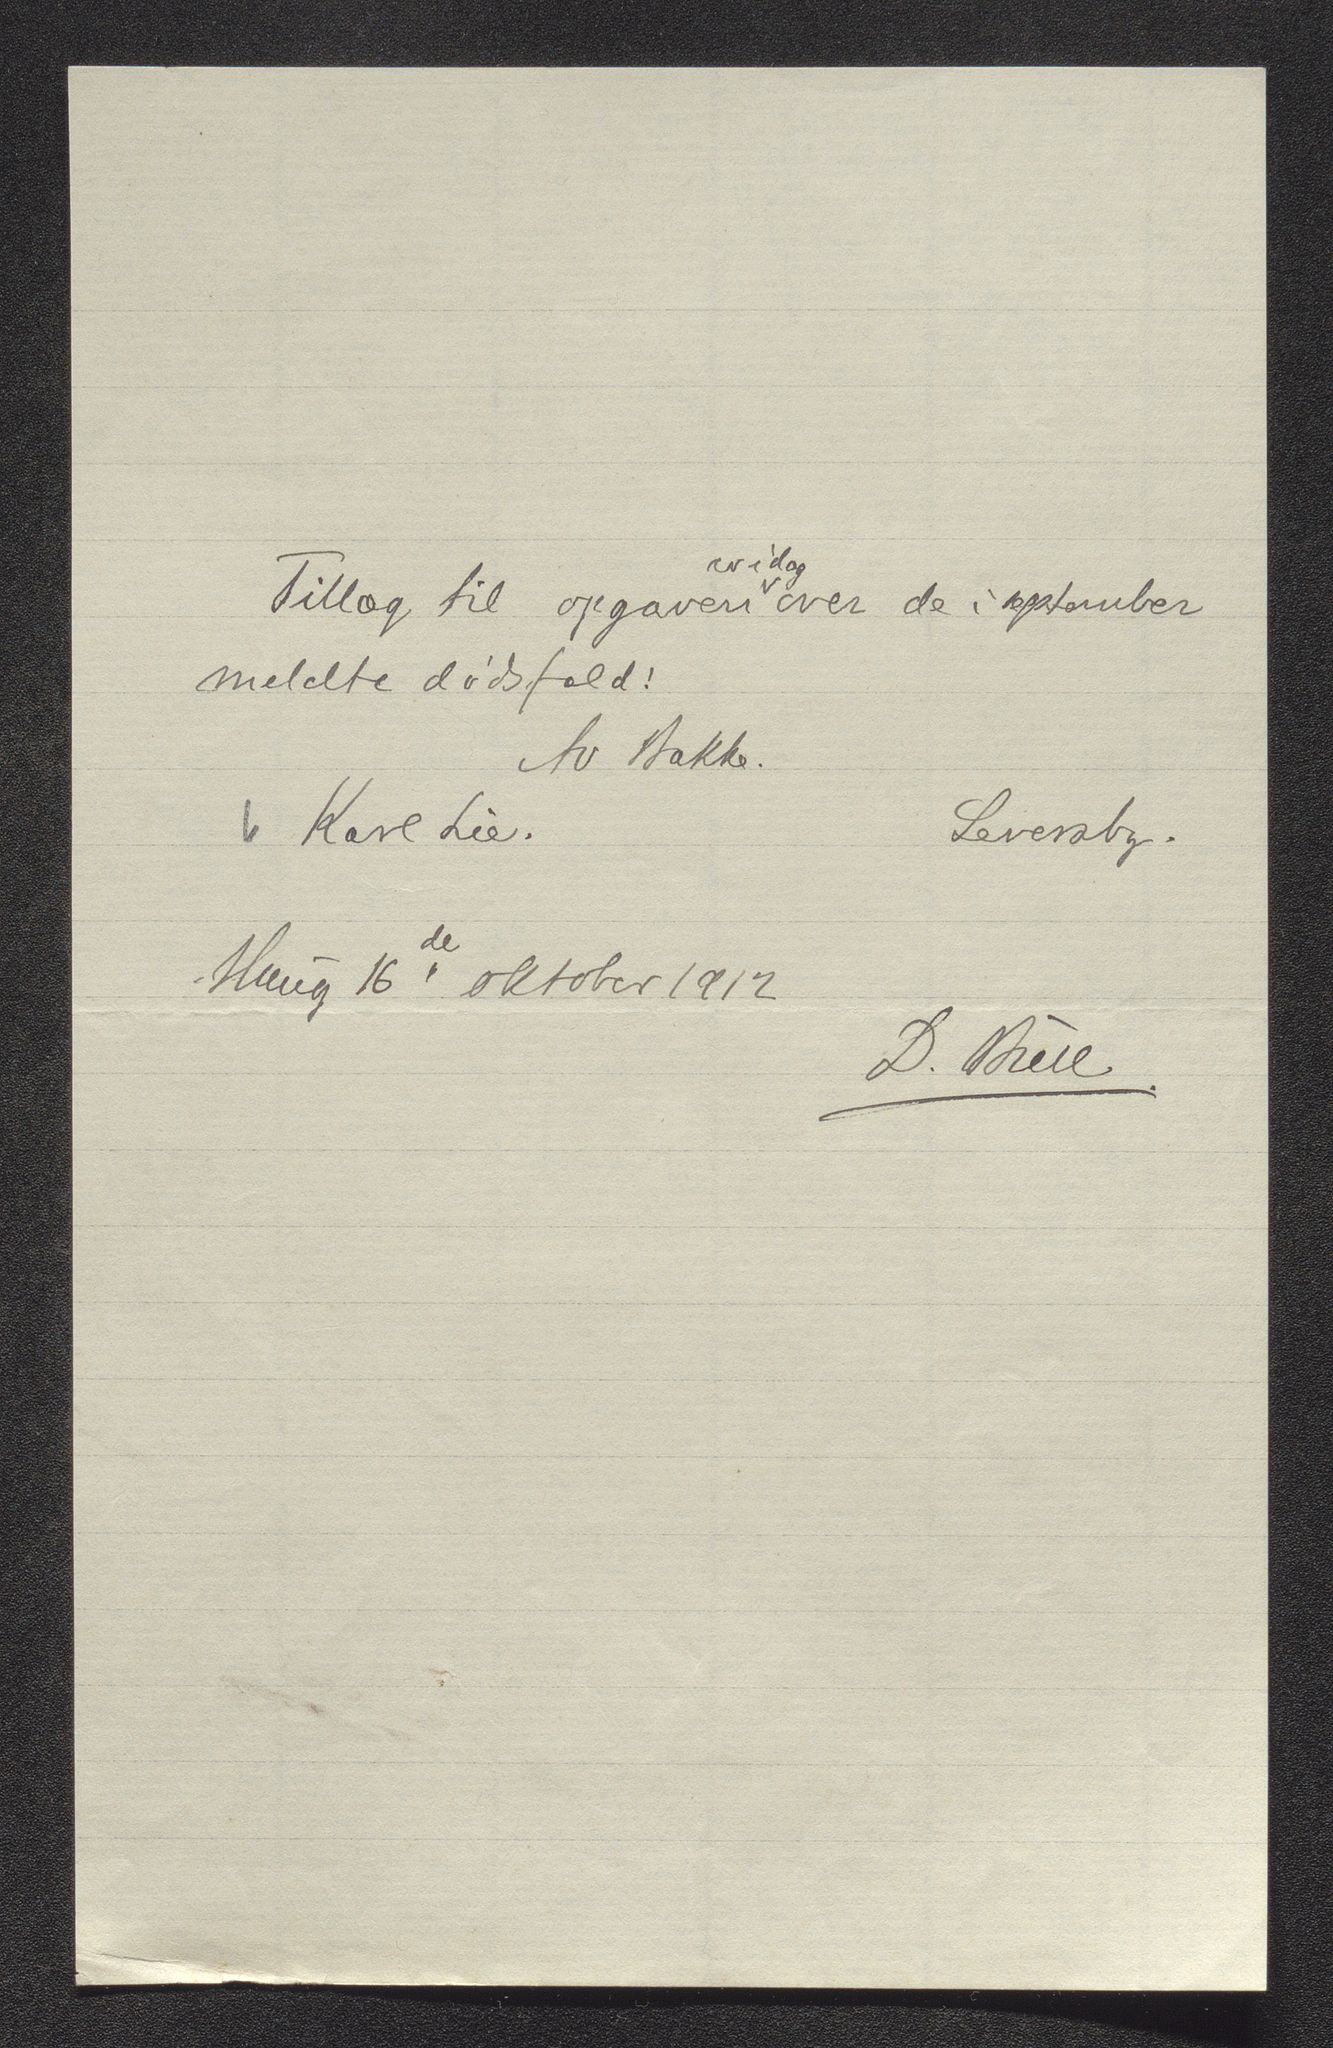 Tillæg til opgaven av idag over de i september
meldte dødsfald:
Av Bakke.
Karl Lie. Leversby.
Haug 16de oktober 1912
D. Bull.